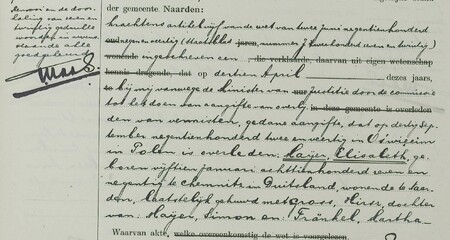 de woorden
twintig gedrukte
woorden in neven-
staande akte
goedgekeurd.
Maas.
der gemeente Naarden:
krachtens artikel vijf van de wet van twee juni negentienhonderd
oud negen en veertig (Staatsblad jaren, nummer J tweehonderd zeven en twintig)
wonende ingeschreven een , die verklaarde, daarvan uit eigen wetenschap
kennis dragende, dat op dertien April dezes jaars,
te bij mij vanwege de Minister van uur Justitie door de commissie
tot het doen van aangifte van overlij- in deze gemeente is overleden
den van vermisten, gedane aangifte, dat op dertig Sep-
tember negentienhonderd twee en veertig in Oswiecim
in Polen is overleden: Mayer, Elisabeth, ge-
boren vijftien januari achttienhonderd zeven en
negentig te Chemnitz in Duitsland, wonende te Naar-
den, laatstelijk gehuwd met Gross, Hirsz, dochter
van: Mayer, Simon en: Fränkel, Martha.
Waarvan akte, welke overeenkomstig de wet is voorgelezen